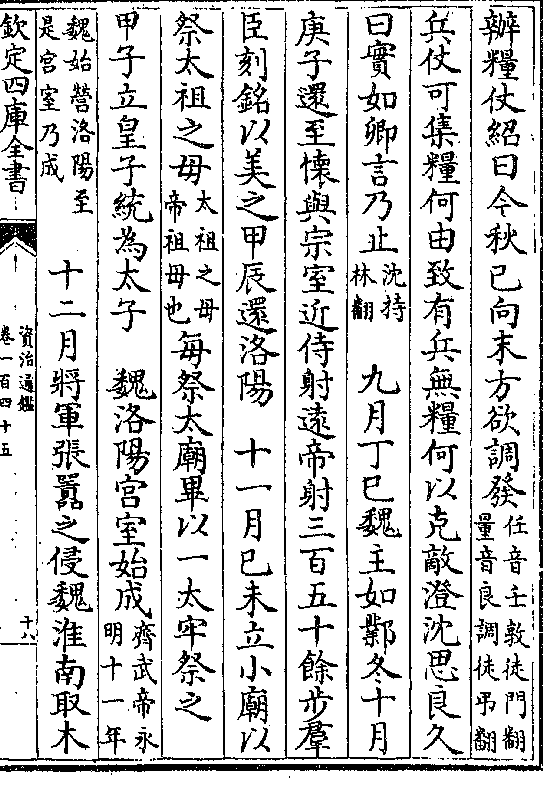 辦糧仗紹曰今秋已向末方欲調發任音壬敦徒門翻
量音良調徒弔翻
兵仗可集糧何由致有兵無糧何以克敵澄沈思良久
曰實如卿言乃止沈持
林翻
九月丁巳魏主如鄴冬十月
庚子還至懷與宗室近侍射遠帝射三百五十餘步羣
臣刻銘以美之甲辰還洛陽　十一月己未立小廟以
祭太祖之母太祖之母
帝祖母也
每祭太廟畢以一太牢祭之
甲子立皇子統為太子　魏洛陽宫室始成齊武帝永
明十一年
魏始營洛陽至
是宫室乃成
十二月將軍張囂之侵魏淮南取木
欽定四庫全書
資治通鑑
卷一百四十五
十八